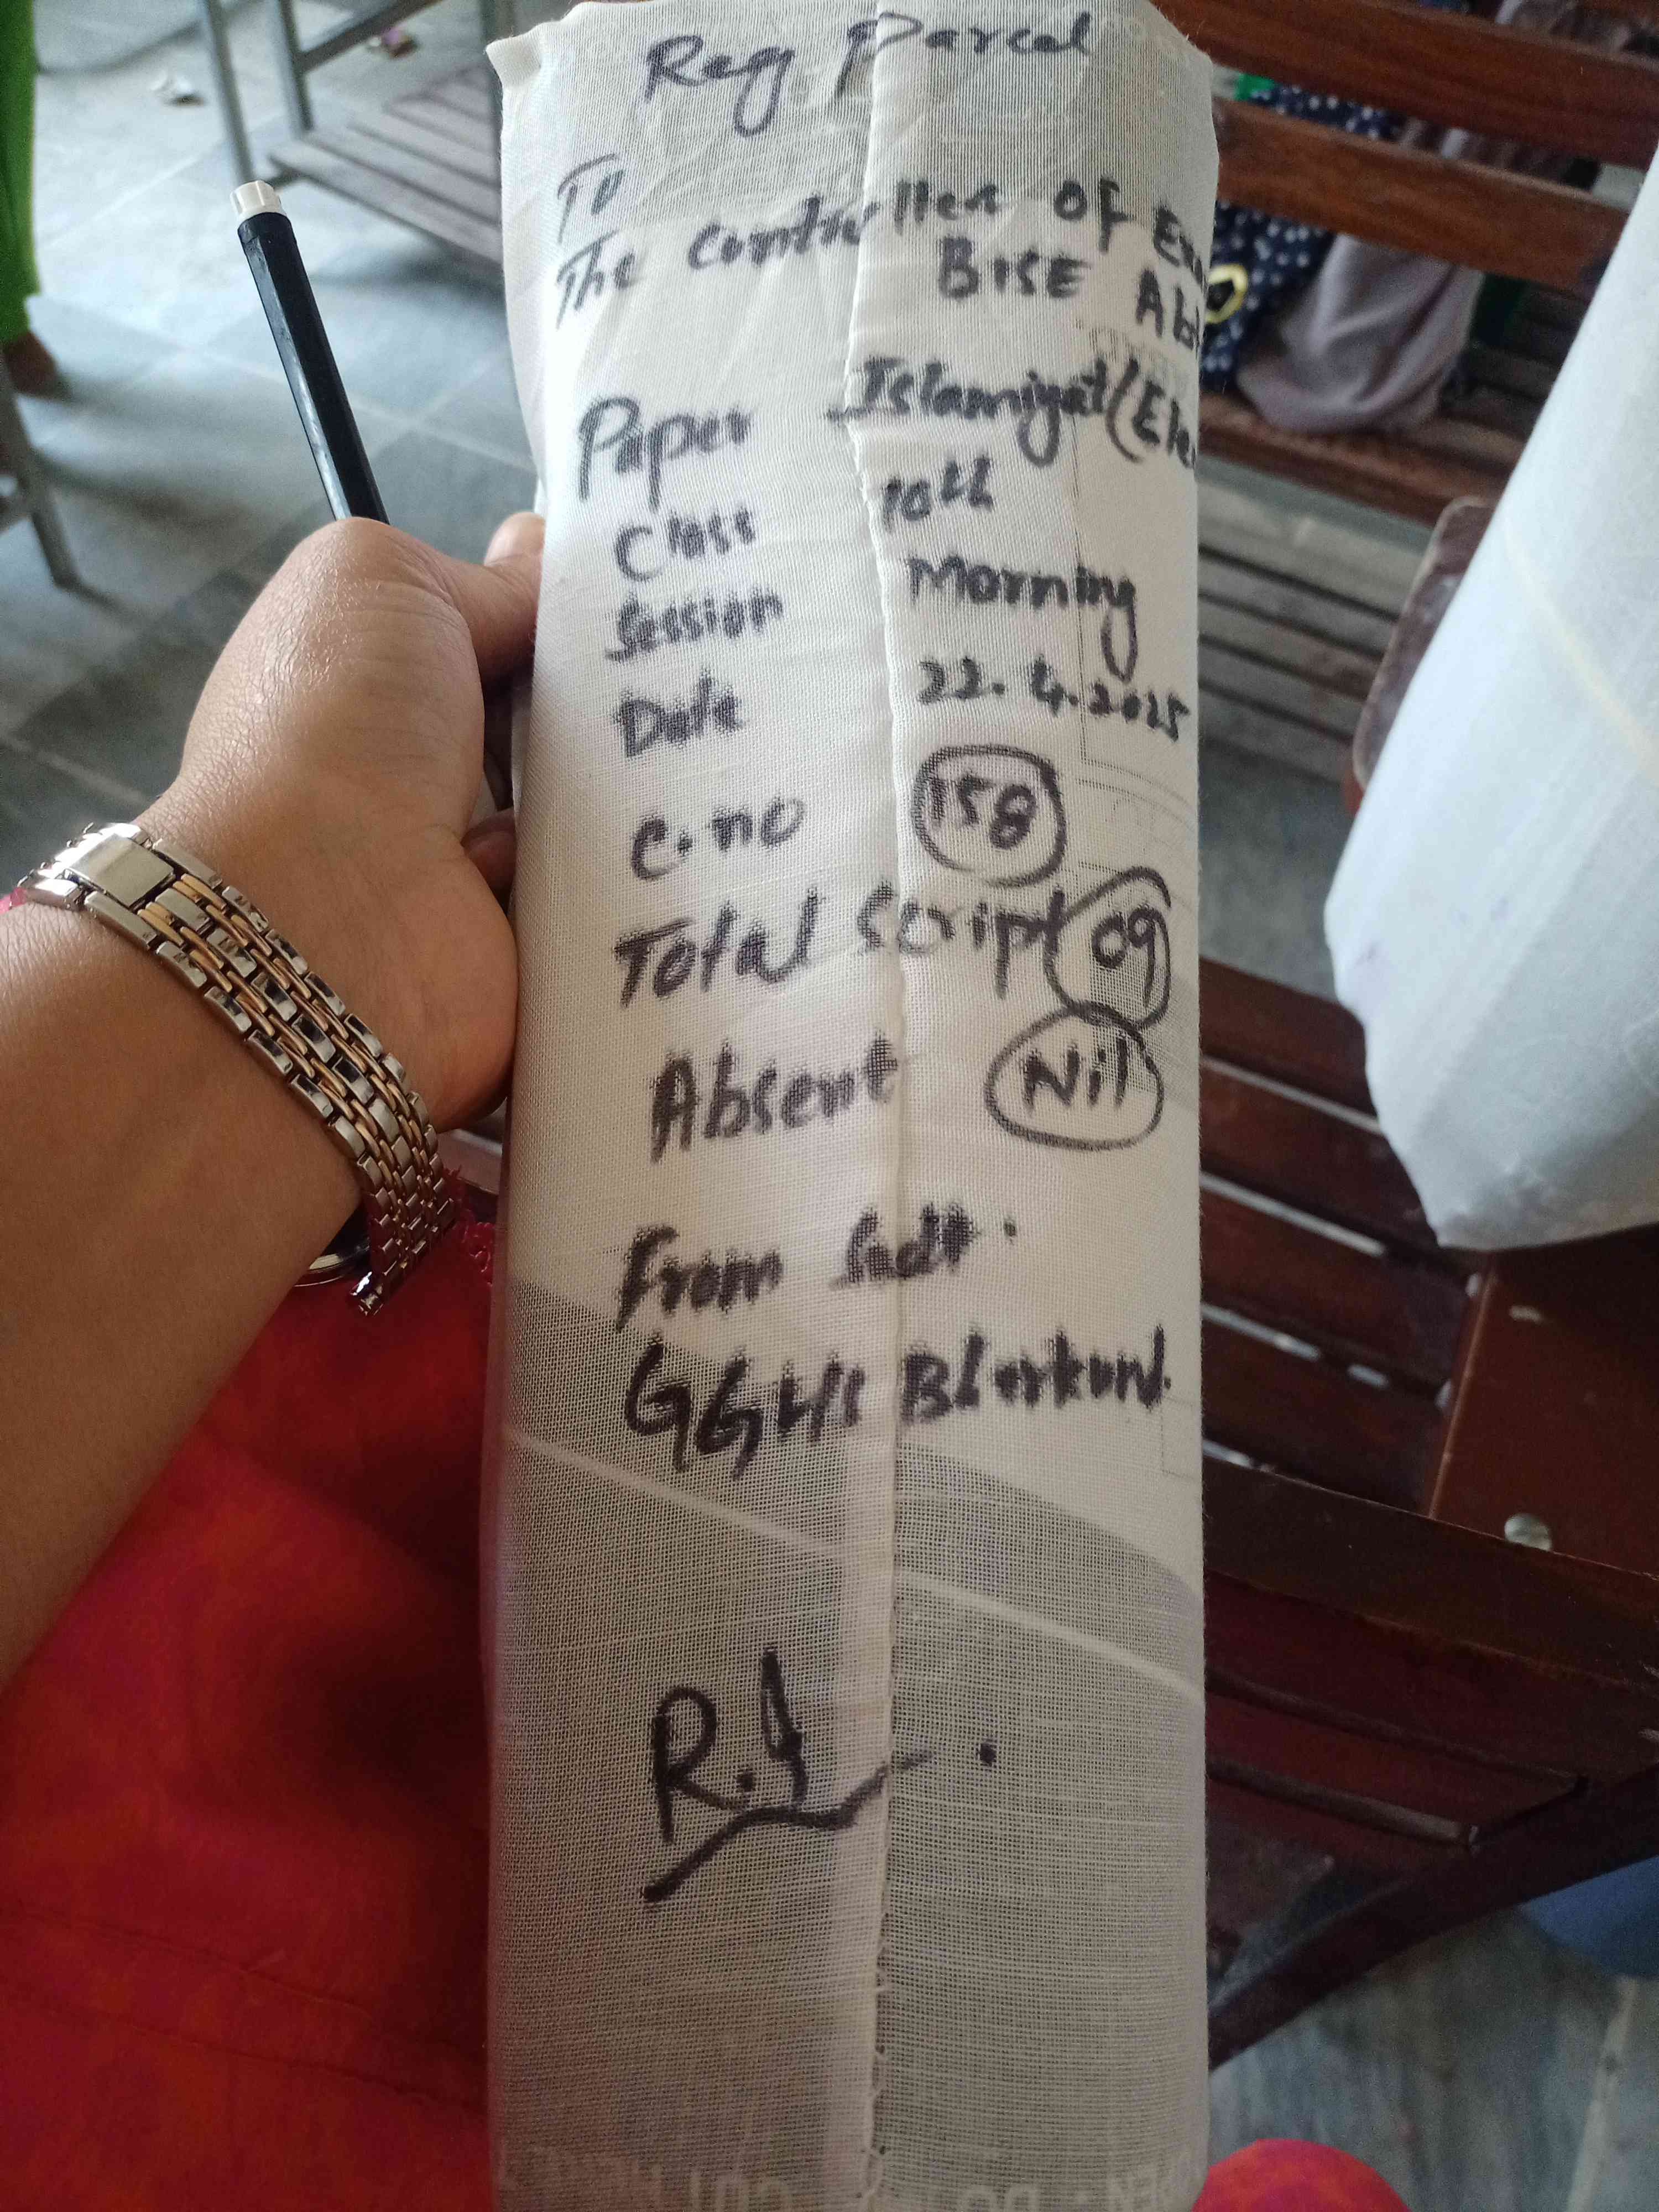 Reg Parcel
To
The controller of Exa
BISE Abb
Paper Islamiyat (Elec
Class 10th
Session Morning
Date 22.4.2025
C.no 158
Total Script 09
Absent Nil
From Sudt.
GGHS